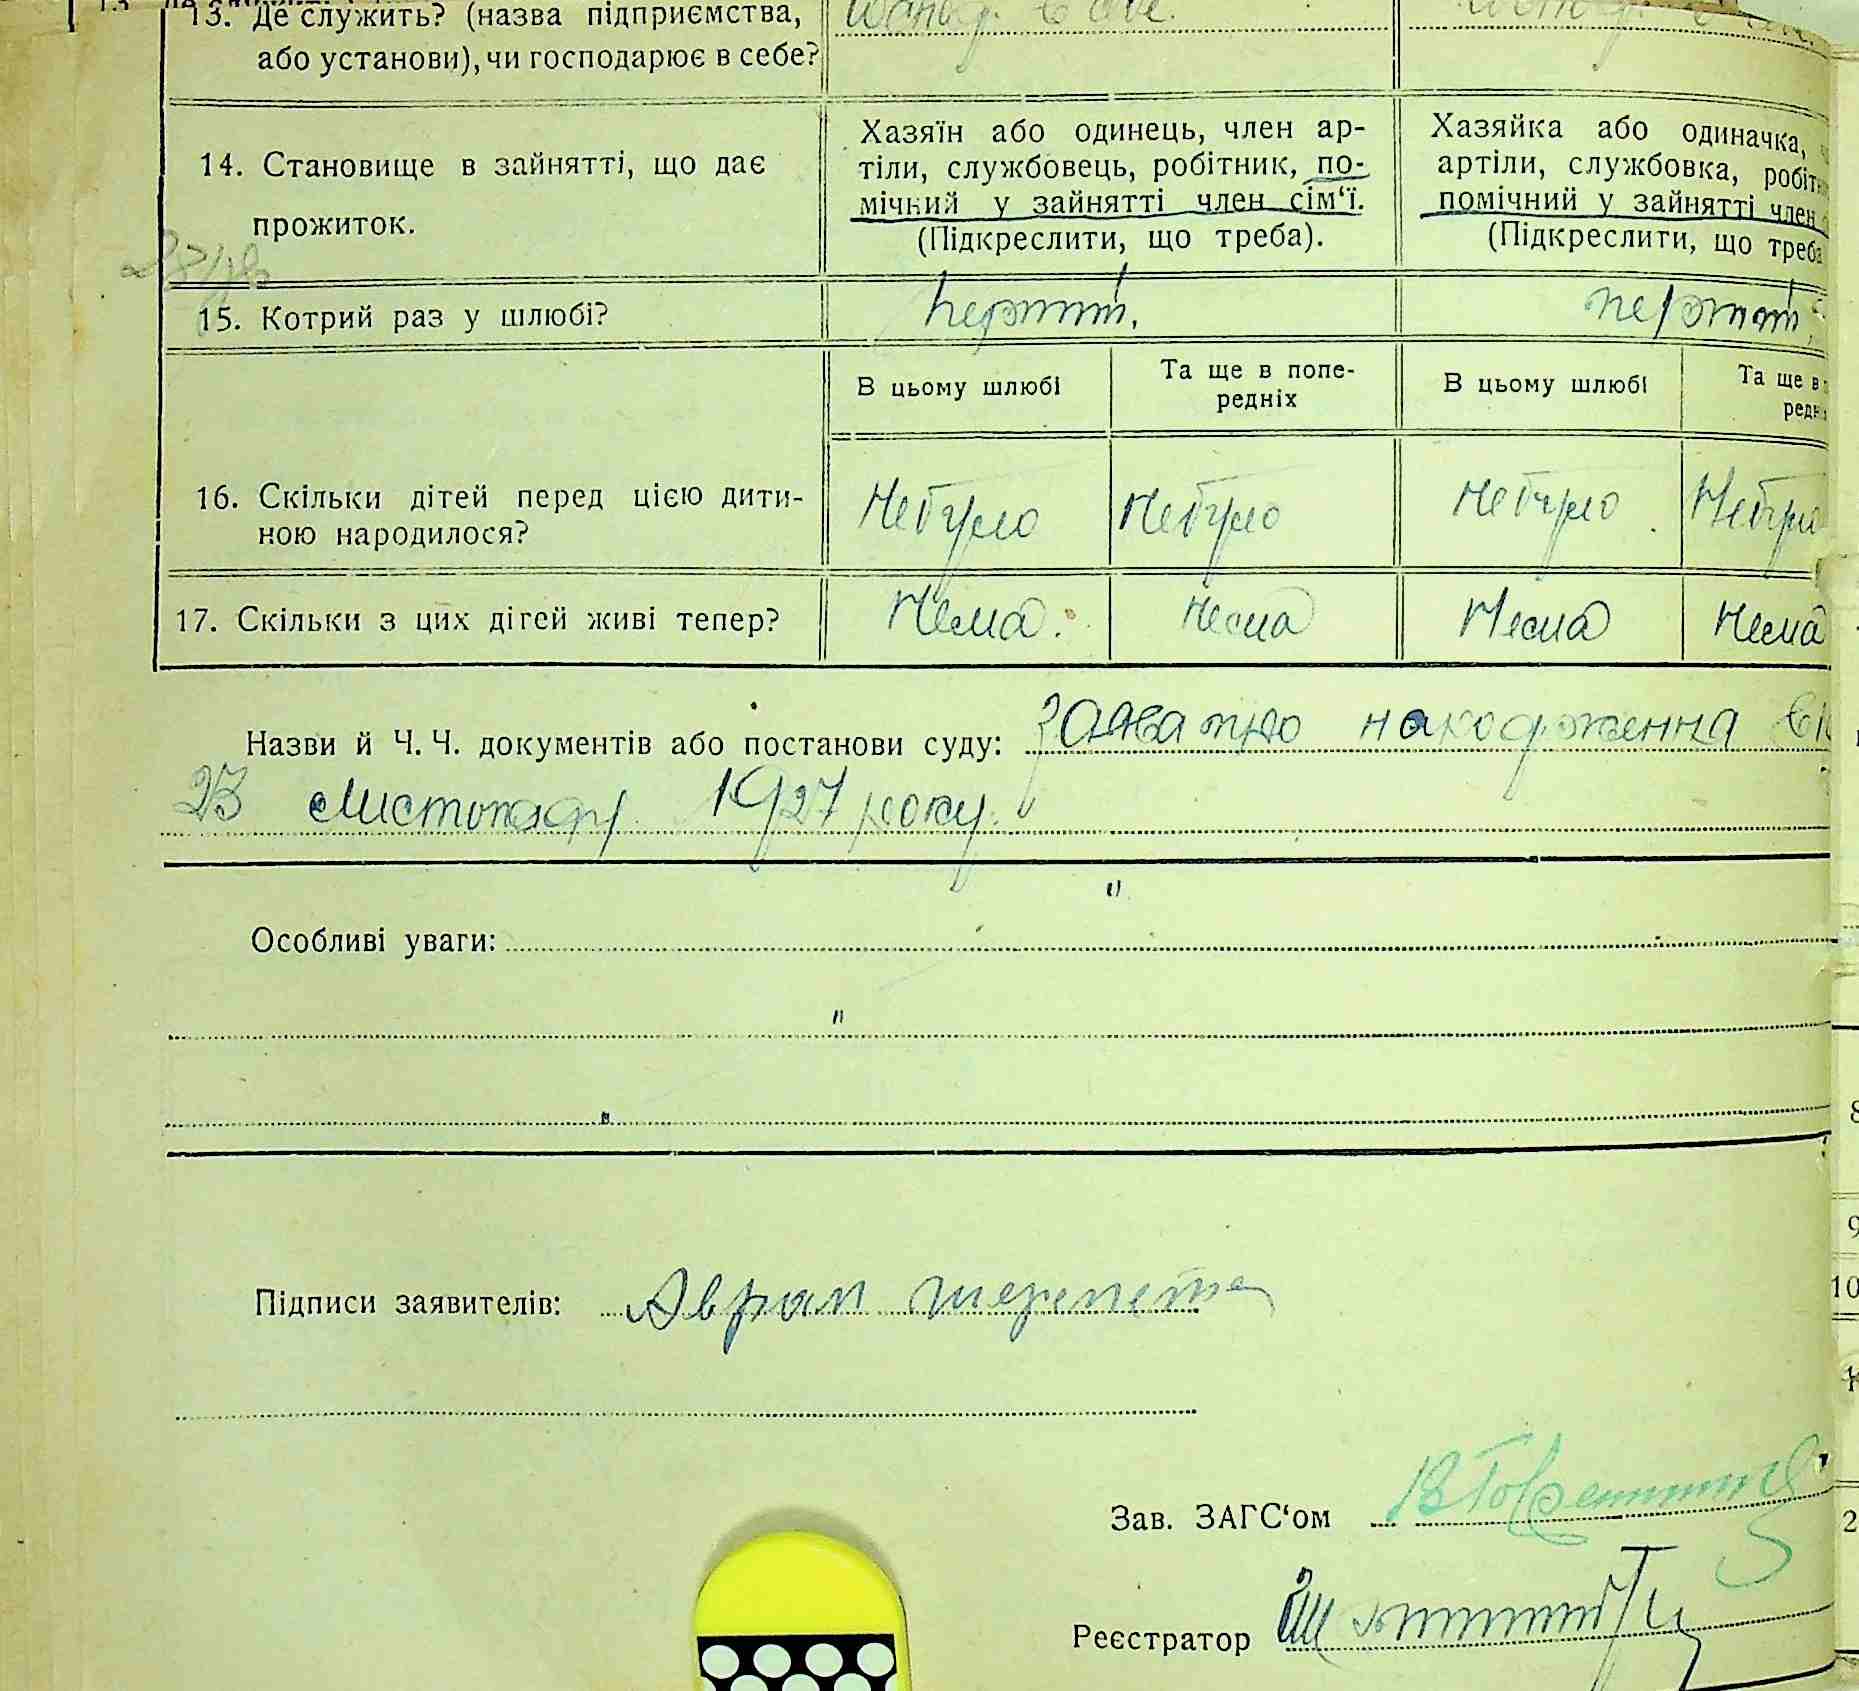 13. Де служить? (назва підприємства,
або установи), чи господарює в себе?
14. Становище в зайнятті, що дає
прожиток.
Хазяїн або одинець, член ар-
тіли, службовець, робітник, по-
мічний у зайнятті член сім‘ї.
(Підкреслити, що треба).
Хазяйка або одиначка,
артіли, службовка, робіт
помічний у зайнятті член
(Підкреслити, що треба
15. Котрий раз у шлюбі?
перший.
перший
В цьому шлюбі
Та ще в попе-
редніх
В цьому шлюбі
Та ще в
редн
16. Скільки дітей перед цією дити-
ною народилося?
Небуло
Небуло
Небуло
Небуло
17. Скільки з цих дітей живі тепер?
Нема.
Нема
Нема
Нема
Назви й Ч. Ч. документів або постанови суду: Заява про находження
23 листопаду 1927 року.
Особливі уваги:
Підписи заявителів: Аврам
Зав. ЗАГС‘ом
Реєстратор
8
9
10
2